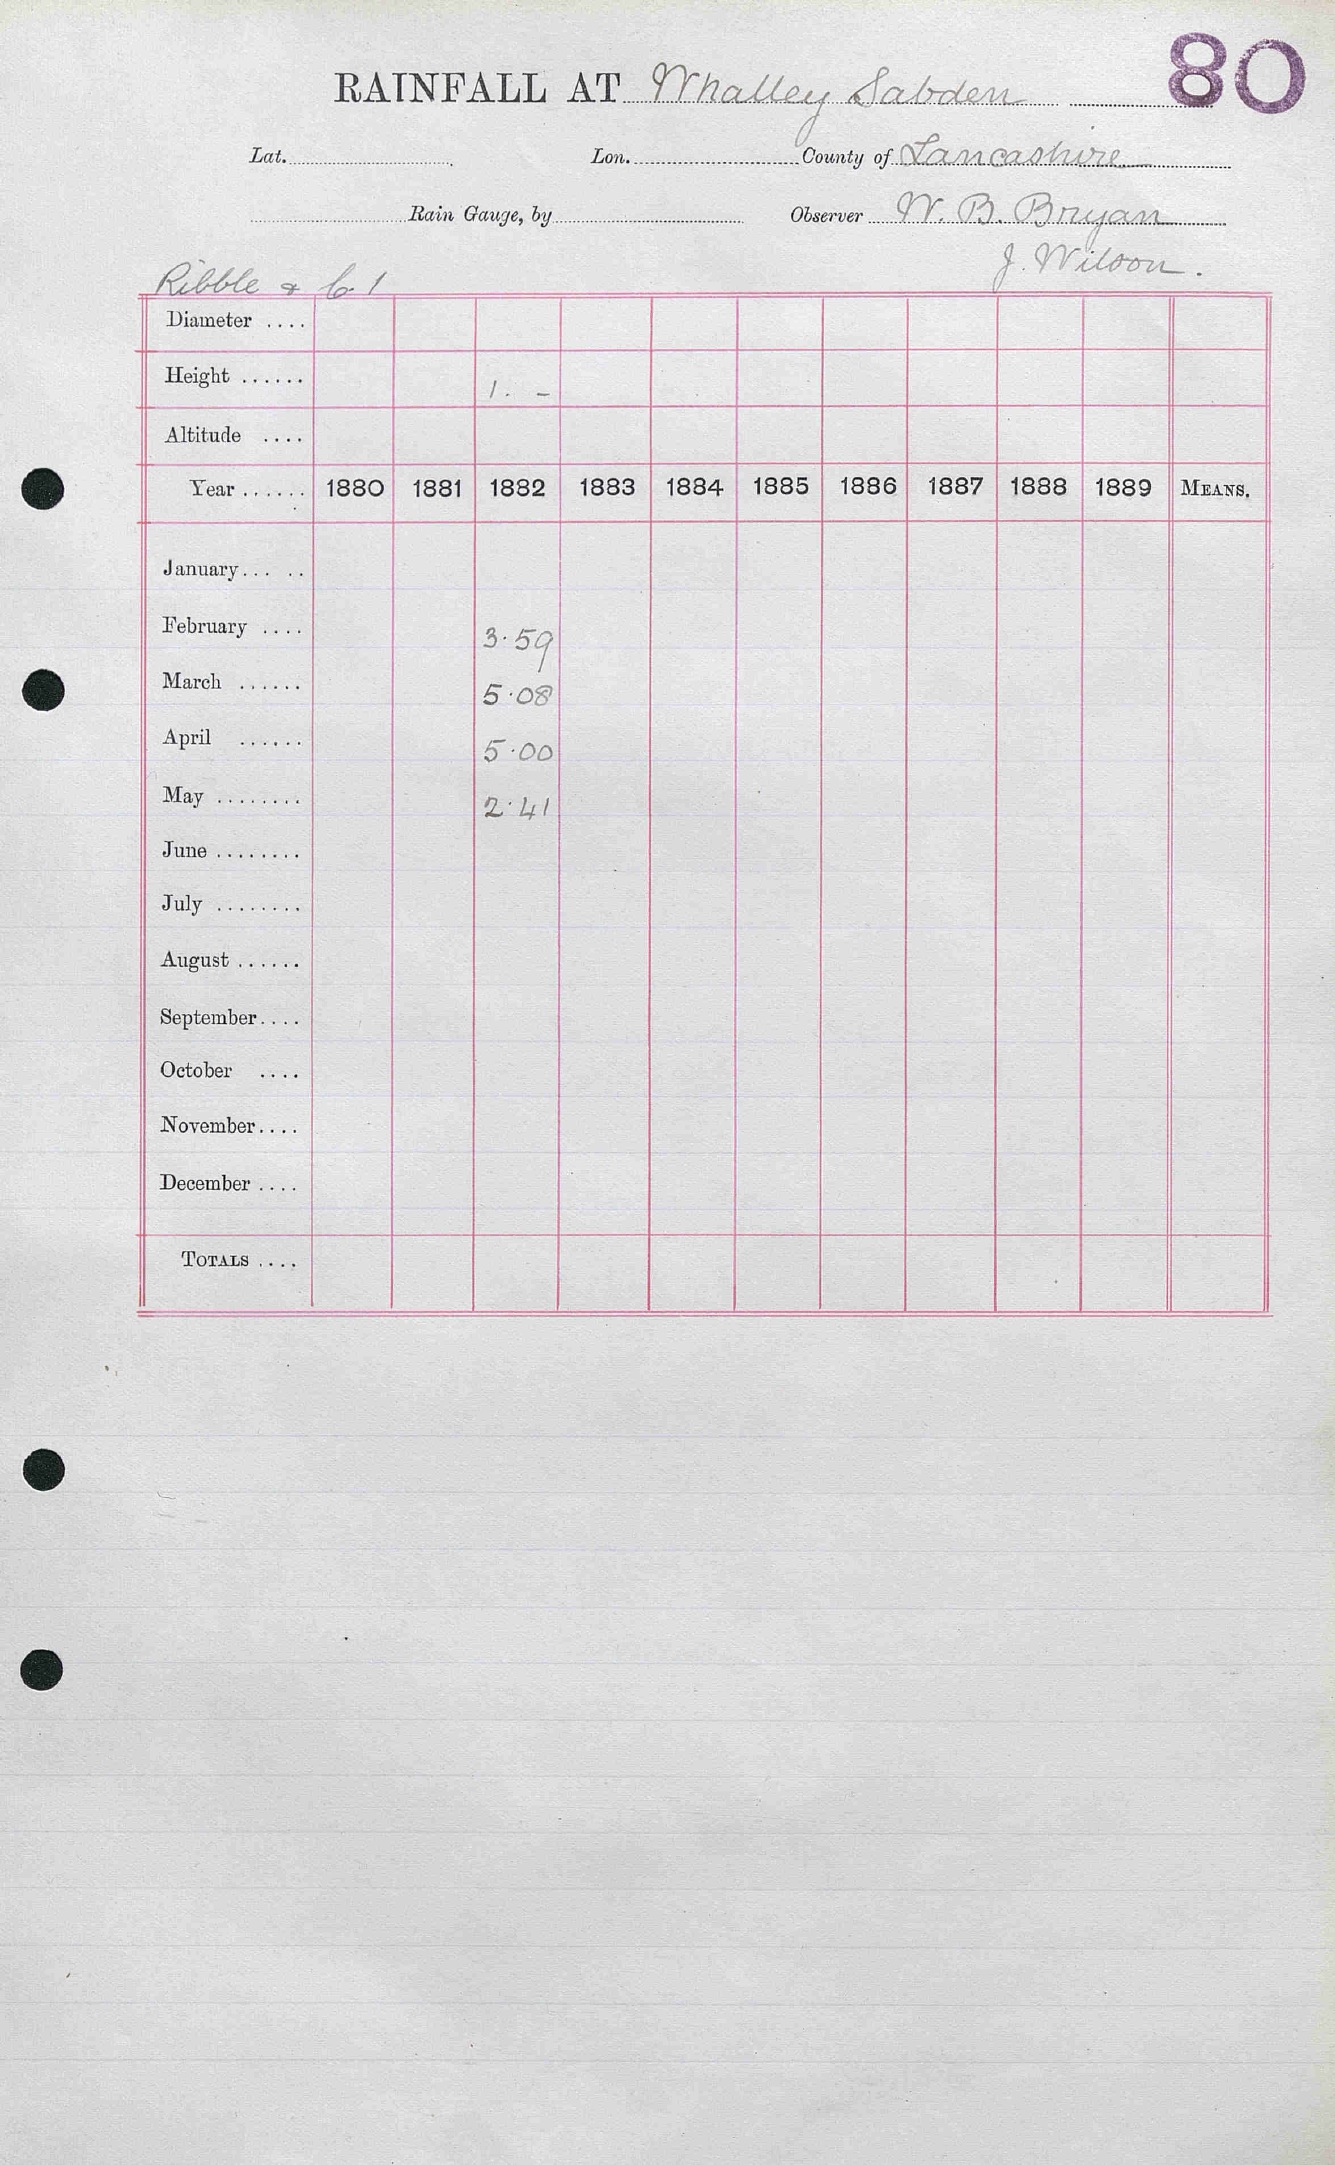 80
RAINFALL AT Whalley Sabden
Lat. Lon. County of Lancashire
Rain Gauge, by Observer W. B. Bryan
J. Wilson.
Ribble & 6.1
Diameter ....
Height ...... 1. -
Altitude ....
Year ...... 1880 1881 1882 1883 1884 1885 1886 1887 1888 1889 MEANS.
January... ..
February .... 3.59
March ...... 5.08
April ...... 5.00
May ........ 2.41
June ........
July ........
August ......
September....
October ....
November....
December ....
TOTALS ....